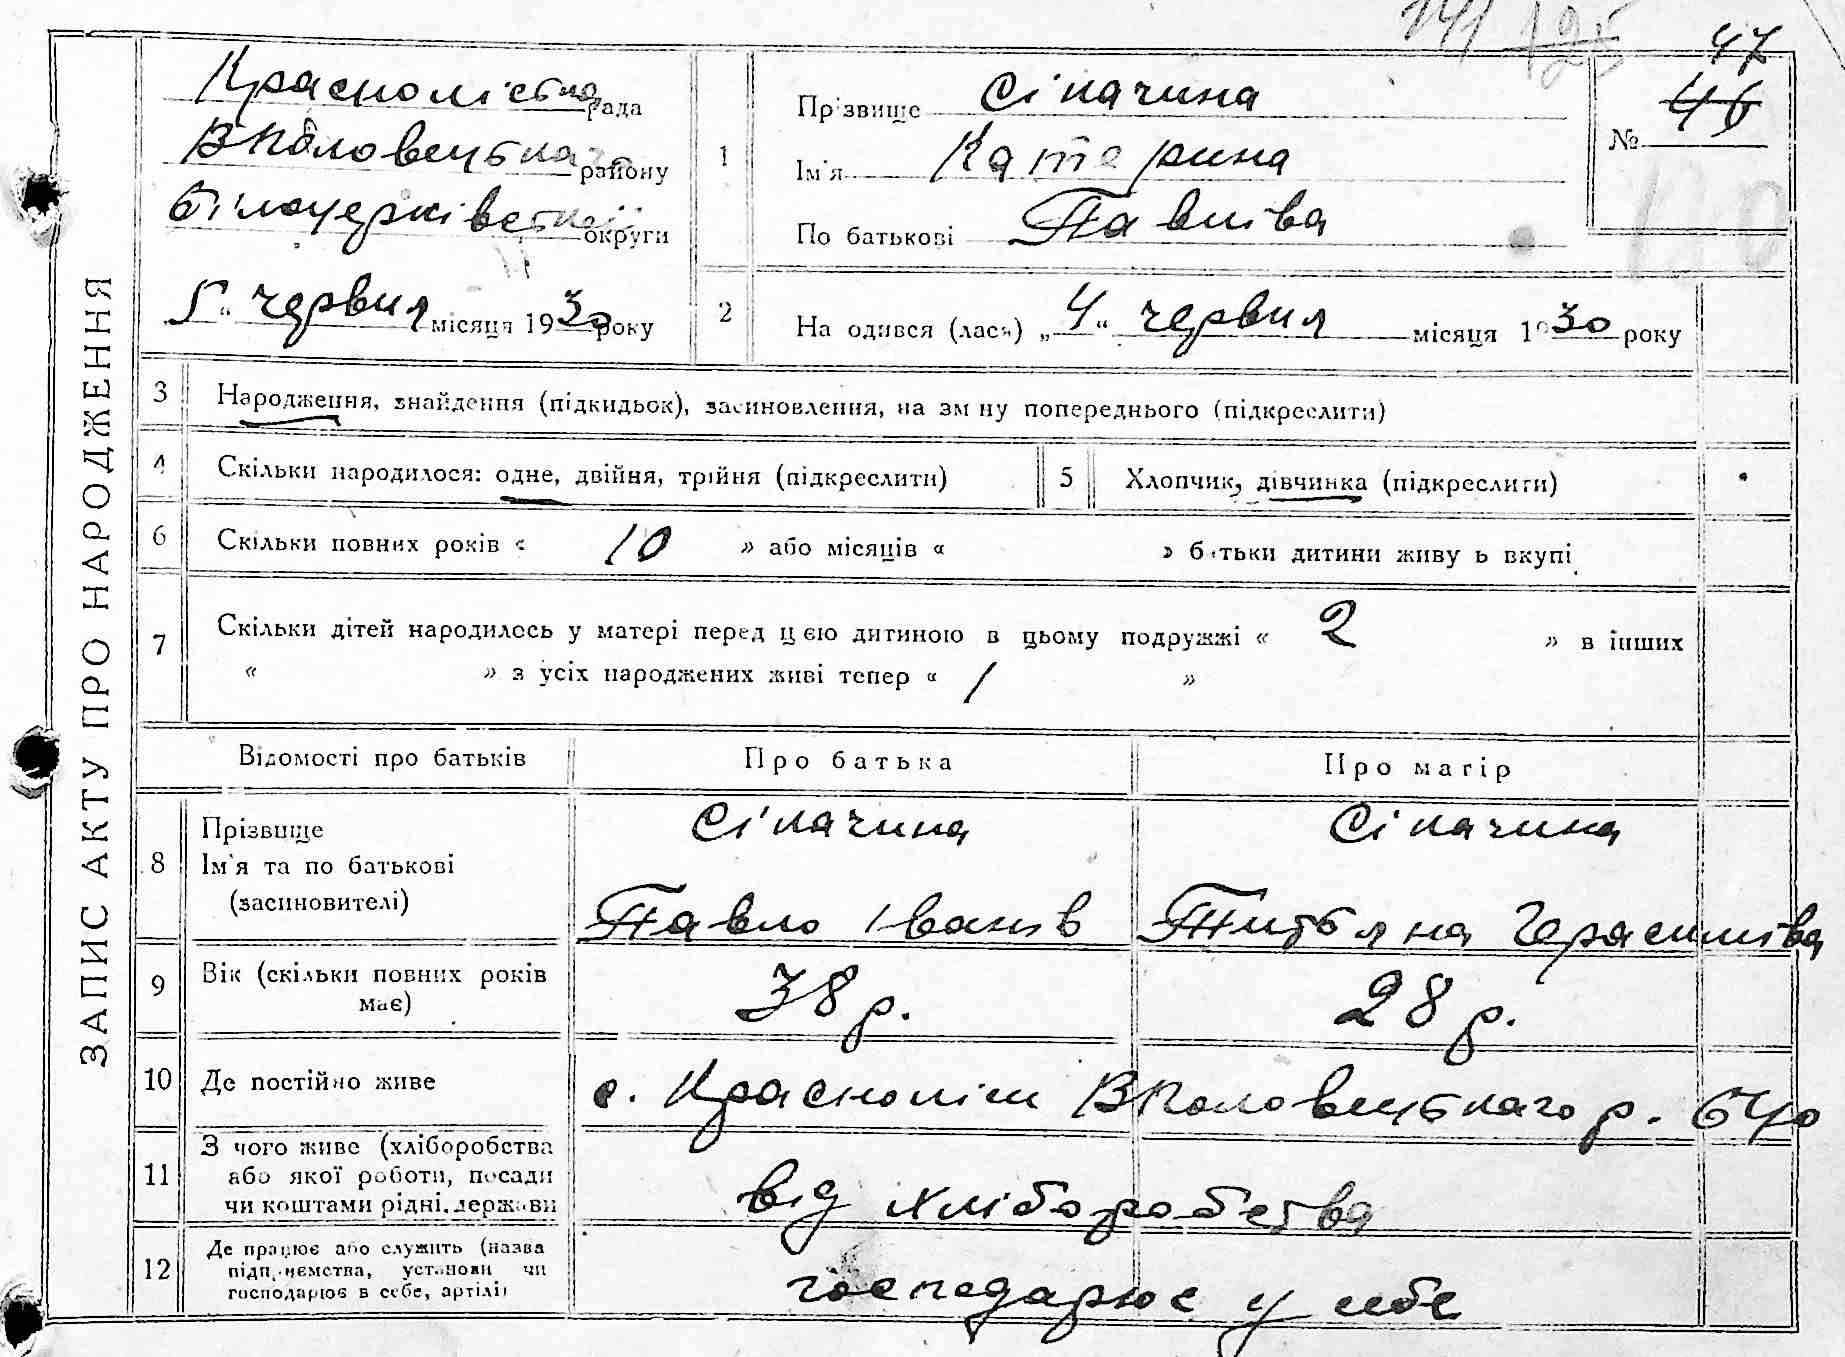 141 125
47
ЗАПИС АКТУ ПРО НАРОДЖЕННЯ
Краснолістка рада
ВПоловецька району
Білоцерківської округи
5 " червня місяця 1930 року
1
Прізвище Сіпачина
Ім'я Катерина
По батькові Павлівa
№ 46
120
2
На одився (лась) „ 4 " червня місяця 1930 року
3
Народження, знайдення (підкидьок), засиновлення, на зм ну попереднього (підкреслити)
4
Скільки народилося: одне, двійня, трійня (підкреслити)
5
Хлопчик, дівчинка (підкреслити)
6
Скільки повних років « 10 » або місяців « » батьки дитини живу ь вкупі
7
Скільки дітей народилось у матері перед цією дитиною в цьому подружжі « 2 » в інших
« » з усіх народжених живі тепер « 1 »
Відомості про батьків
Про батька
Про матір
8
Прізвище
Ім'я та по батькові
(засиновителі)
Сіпачина
Павло Іванів
Сіпачина
Титяна Герасимівa
9
Вік (скільки повних років
має)
38 р.
28 р.
10
Де постійно живе
с. Красноліси ВПоловецького р. БЦо
11
З чого живе (хліборобства
або якої роботи, посади
чи коштами рідні, держави
від хліборобства
12
Де працює або служить (назва
підприємства, установи чи
господарює в себе, артілі)
господарює у себе